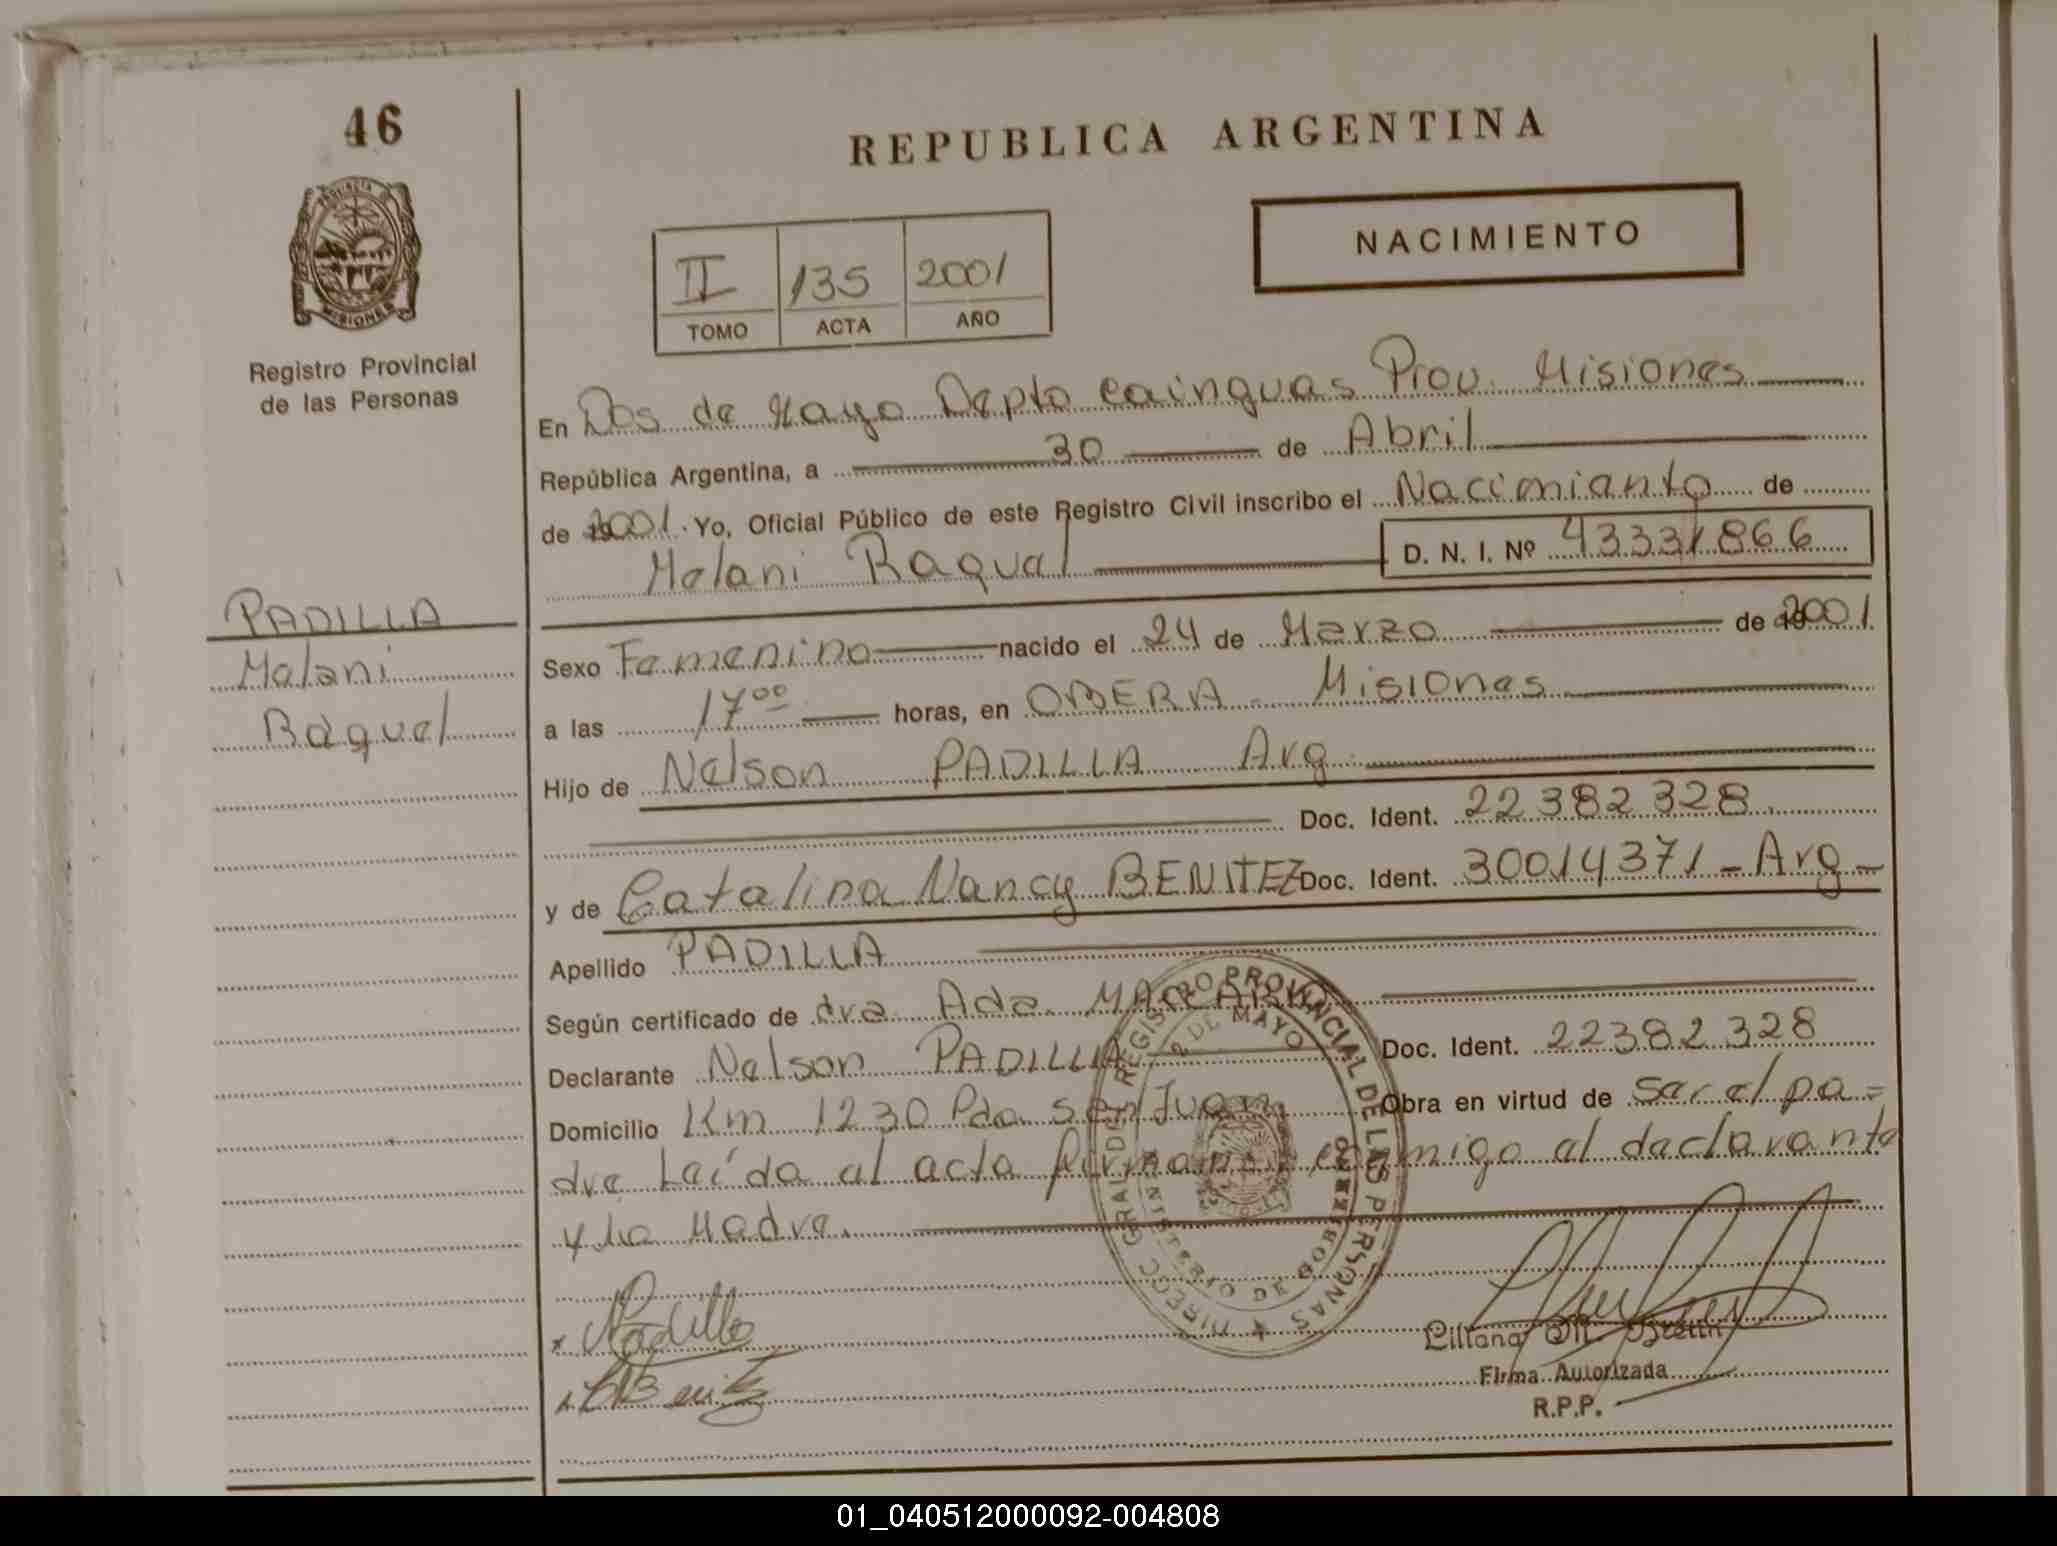 46
REPUBLICA ARGENTINA
NACIMIENTO
II 135 2001
TOMO ACTA AÑO
PROVINCIA
MISIONES
Registro Provincial
de las Personas
En Dos de Mayo Depto Cainguas Prov. Misiones
República Argentina, a 30 de Abril
de 2001. Yo, Oficial Público de este Registro Civil inscribo el Nacimiento de
Melani Raquel D. N. I. Nº 43331866
PADILLA
Melani
Raquel
Sexo Femenino nacido el 24 de Marzo de 2001
a las 17⁰⁰ horas, en OBERA - Misiones
Hijo de Nelson PADILLA Arg.
Doc. Ident. 22382328.
y de Catalina Nancy BENITEZ Doc. Ident. 30014371 - Arg -
Apellido PADILLA
Según certificado de dra. Ada
Declarante Nelson PADILLA Doc. Ident. 22382328
Domicilio Km 1230 Pda San Juan Obra en virtud de ser el pa=
dre Leída el acta firman conmigo el declarante
y La Madre.
DIRECC GRAL DEL REGISTRO PROVINCIAL DE LAS PERSONAS
2 DE MAYO
MINISTERIO DE GOBIERNO
Padilla
Liliana M.
Firma Autorizada
R.P.P.
01_040512000092-004808